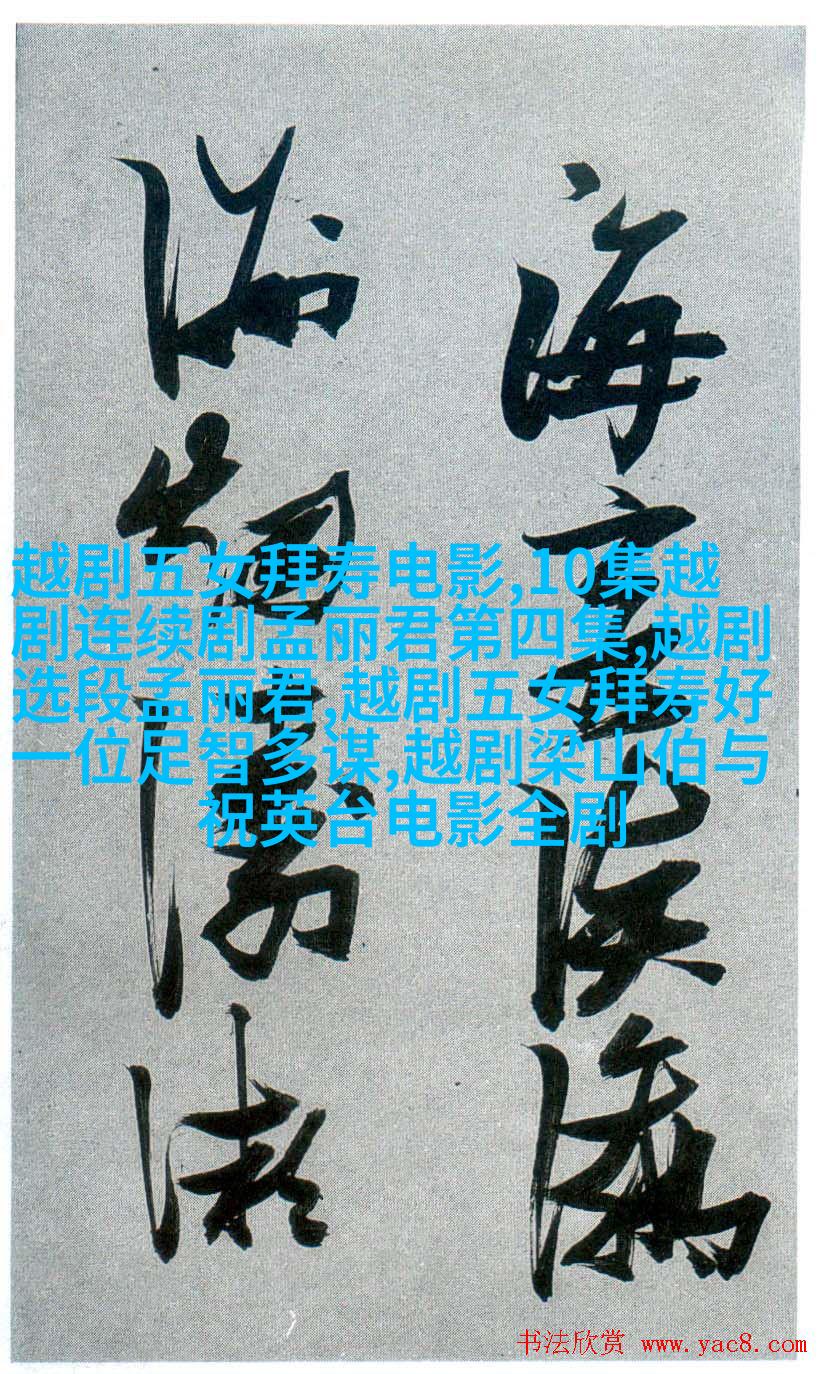 海
越剧五女拜寿电影,10集越
剧连续剧孟丽君第四集,越剧
选段孟丽君,越剧五女拜寿好
一位足智多谋,越剧梁山伯与
祝英台电影全剧
书法欣赏 www.yac8.com